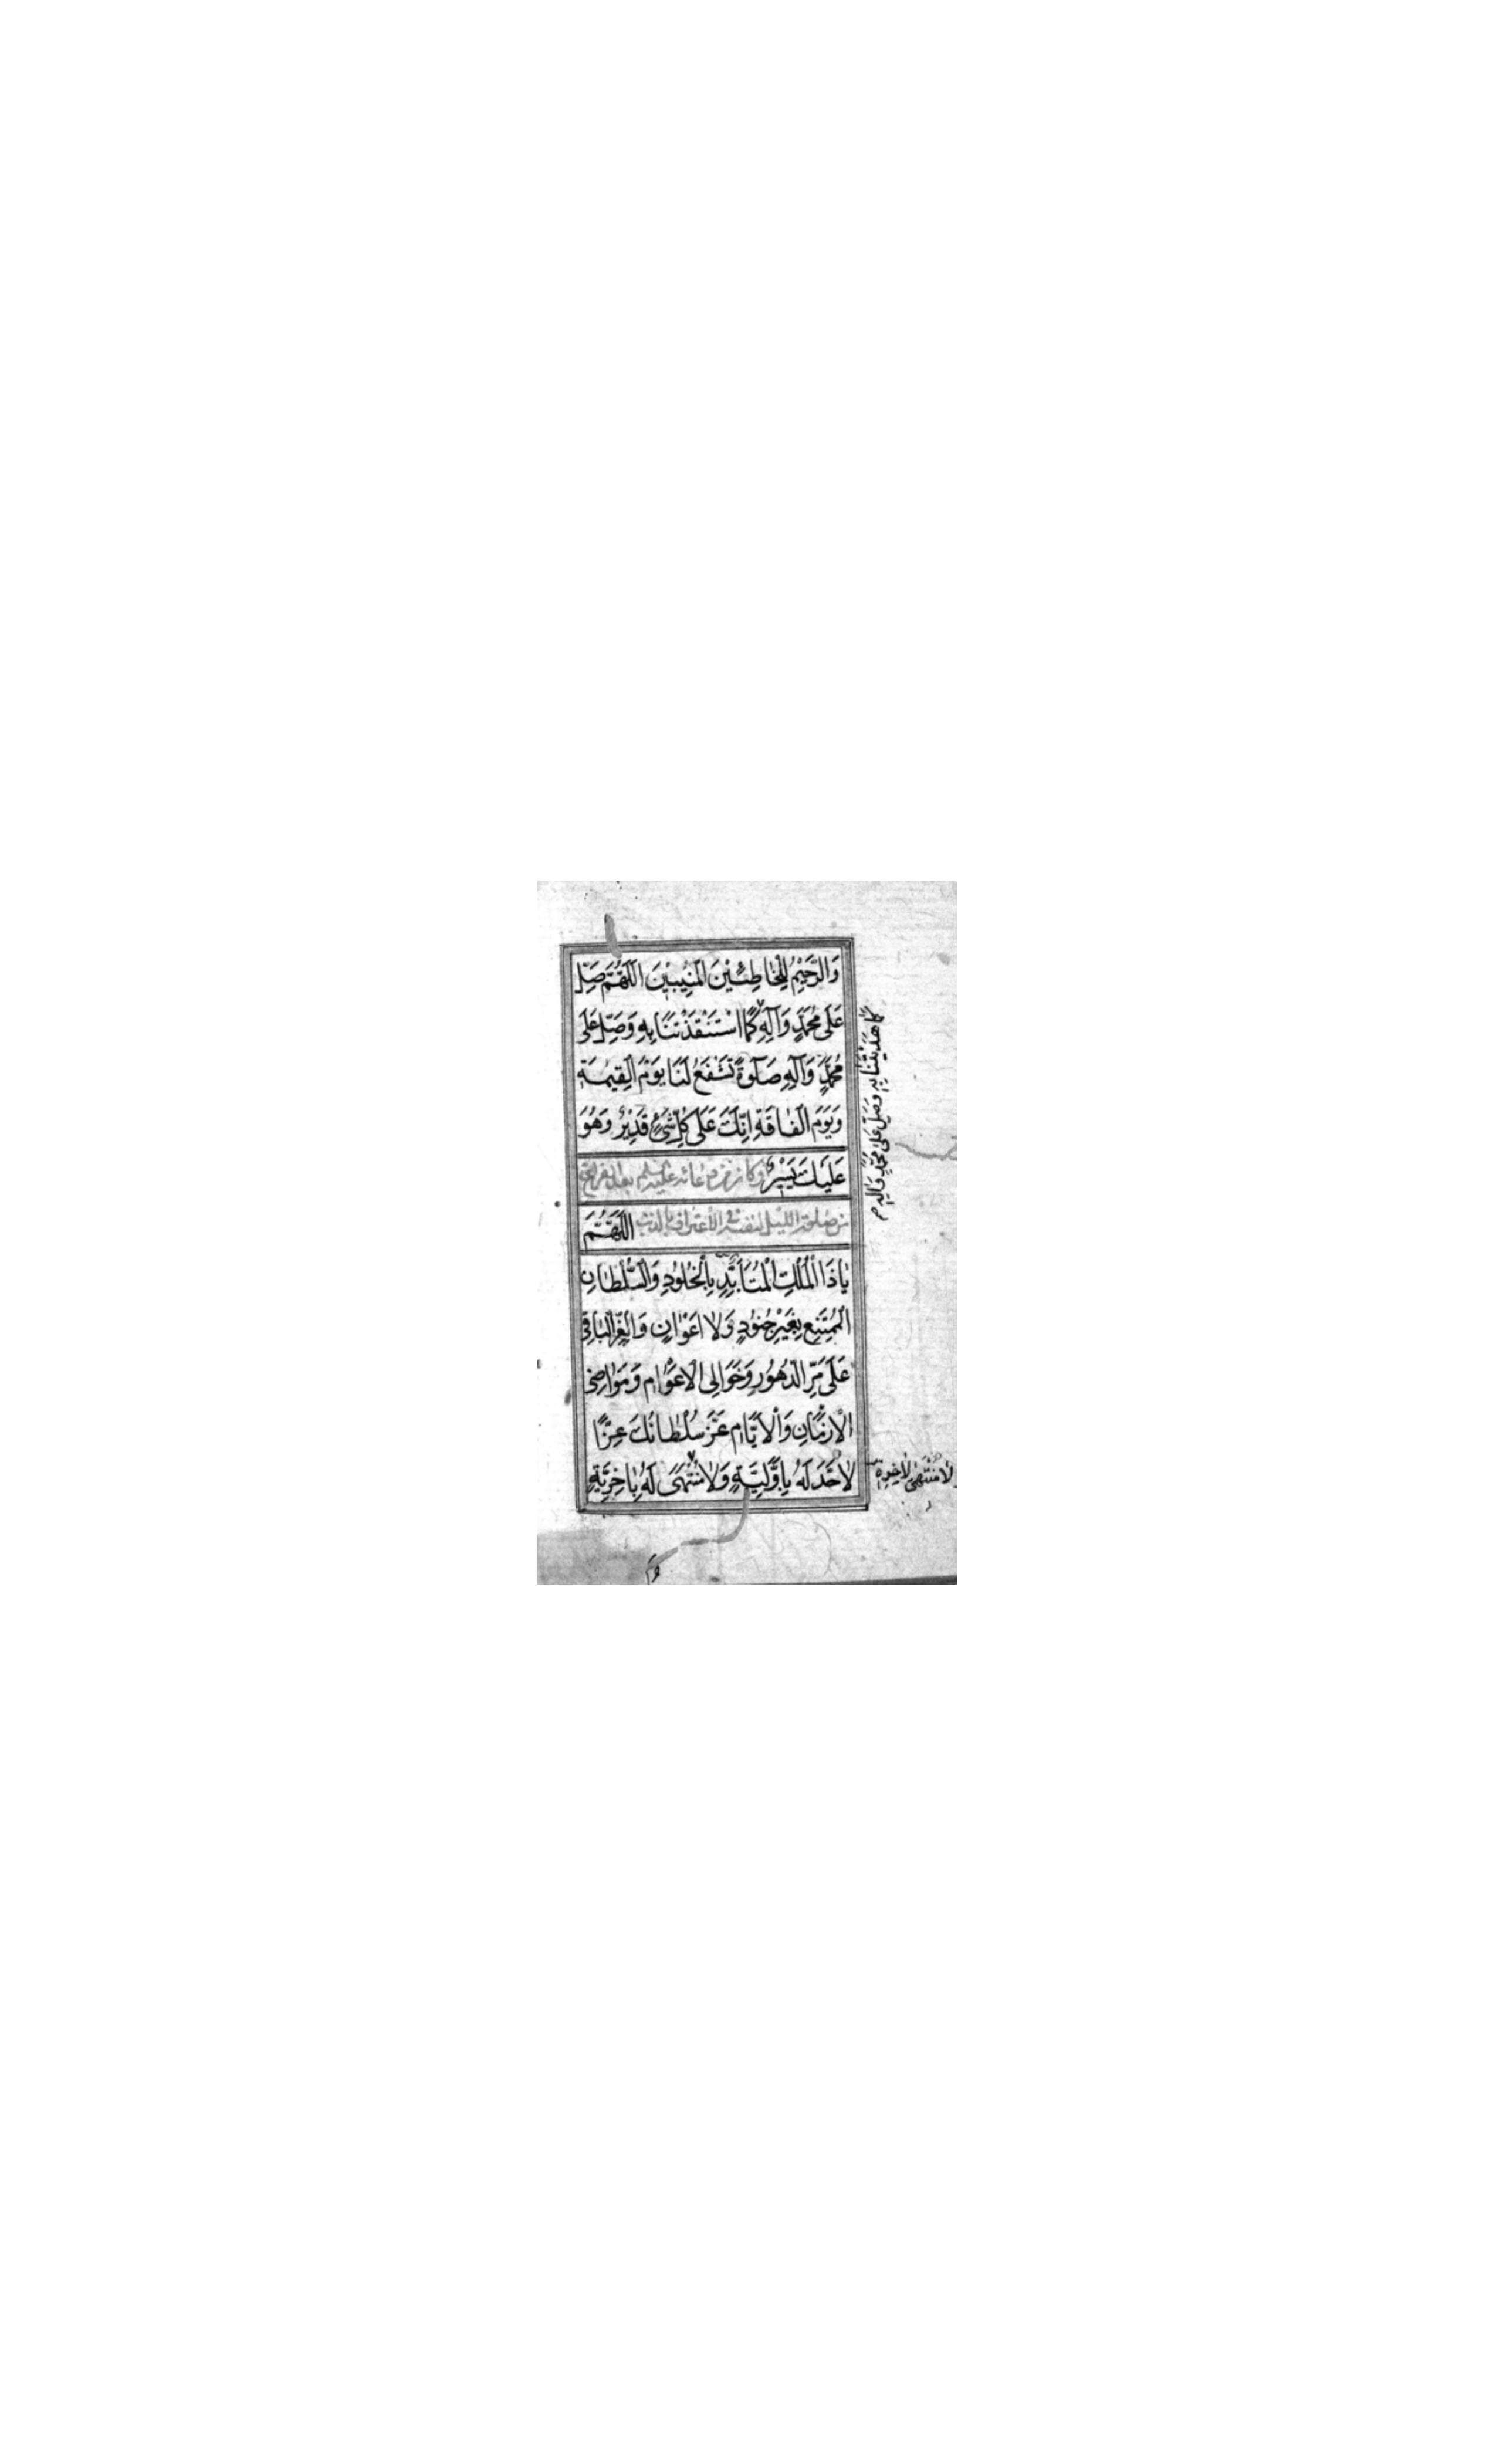 وَالرَّحِيْمُ لِلْخَاطِئِيْنَ الْمُنِيْبِيْنَ اَللّٰهُمَّ صَلِّ
عَلٰى مُحَمَّدٍ وَآلِهِ كَمَا اسْتَنْقَذْتَنَا بِهِ وَصَلِّ عَلٰى
مُحَمَّدٍ وَآلِهِ صَلٰوةً تَشْفَعُ لَنَا يَوْمَ الْقِيٰمَةِ
وَيَوْمَ الْفَاقَةِ اِنَّكَ عَلٰى كُلِّ شَيْءٍ قَدِيْرٌ وَهُوَ
عَلَيْكَ يَسِيْرٌ وكان من دعائه عليه السلم بعد الفراغ
من صلوة الليل لنفسه في الاعتراف بالذنب اَللّٰهُمَّ
يَا ذَا الْمُلْكِ الْمُتَأَبِّدِ بِالْخُلُودِ وَالسُّلْطَانِ
الْمُمْتَنِعِ بِغَيْرِ جُنُودٍ وَلَا اَعْوَانٍ وَالْعِزِّ الْبَاقِي
عَلٰى مَرِّ الدُّهُورِ وَخَوَالِي الْاَعْوَامِ وَمَوَاضِي
الْاَزْمَانِ وَالْاَيَّامِ عَزَّ سُلْطَانُكَ عِزًّا
لَا حَدَّ لَهُ بِاَوَّلِيَّةٍ وَلَا مُنْتَهٰى لَهُ بِاٰخِرِيَّةٍ
كَمَا هَدَيْتَنَا بِهِ وَصَلِّ عَلٰى مُحَمَّدٍ وَآلِهِ
وَلَا مُنْتَهٰى لِاٰخِرِهِ